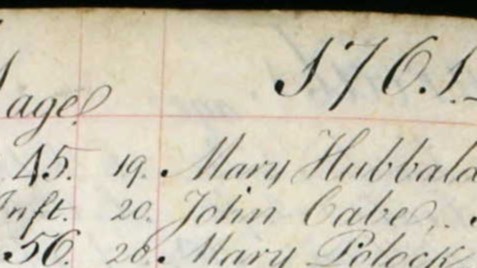 1761.
age
45. 19. Mary Hubbald
Inft. 20. John Cabe
56. 20. Mary Polock